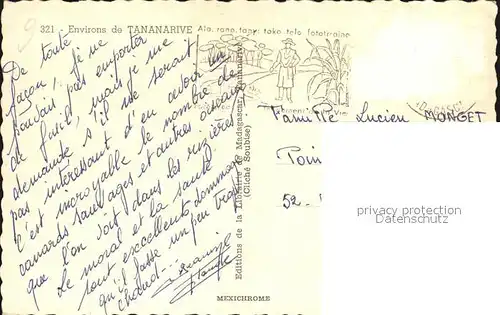 321 - Environs de TANANARIVE
Ala, rano, tany: toko telo fototr'aina
De toute
façon, je ne
voudrais pas emporter
de fusil, mais je me
demande s'il ne serait
pas intéressant d'en avoir un
c'est incroyable le nombre de
canards sauvages et autres oiseaux
que l'on voit dans les rizières
Le moral et la santé
sont excellents, dommage
qu'il fasse un peu trop
chaud...
Editions de la Librairie de Madagascar, Tananarive
(Cliché Soubise)
Famille Lucien MONGET
Poin
52 -
privacy protection
MEXICHROME